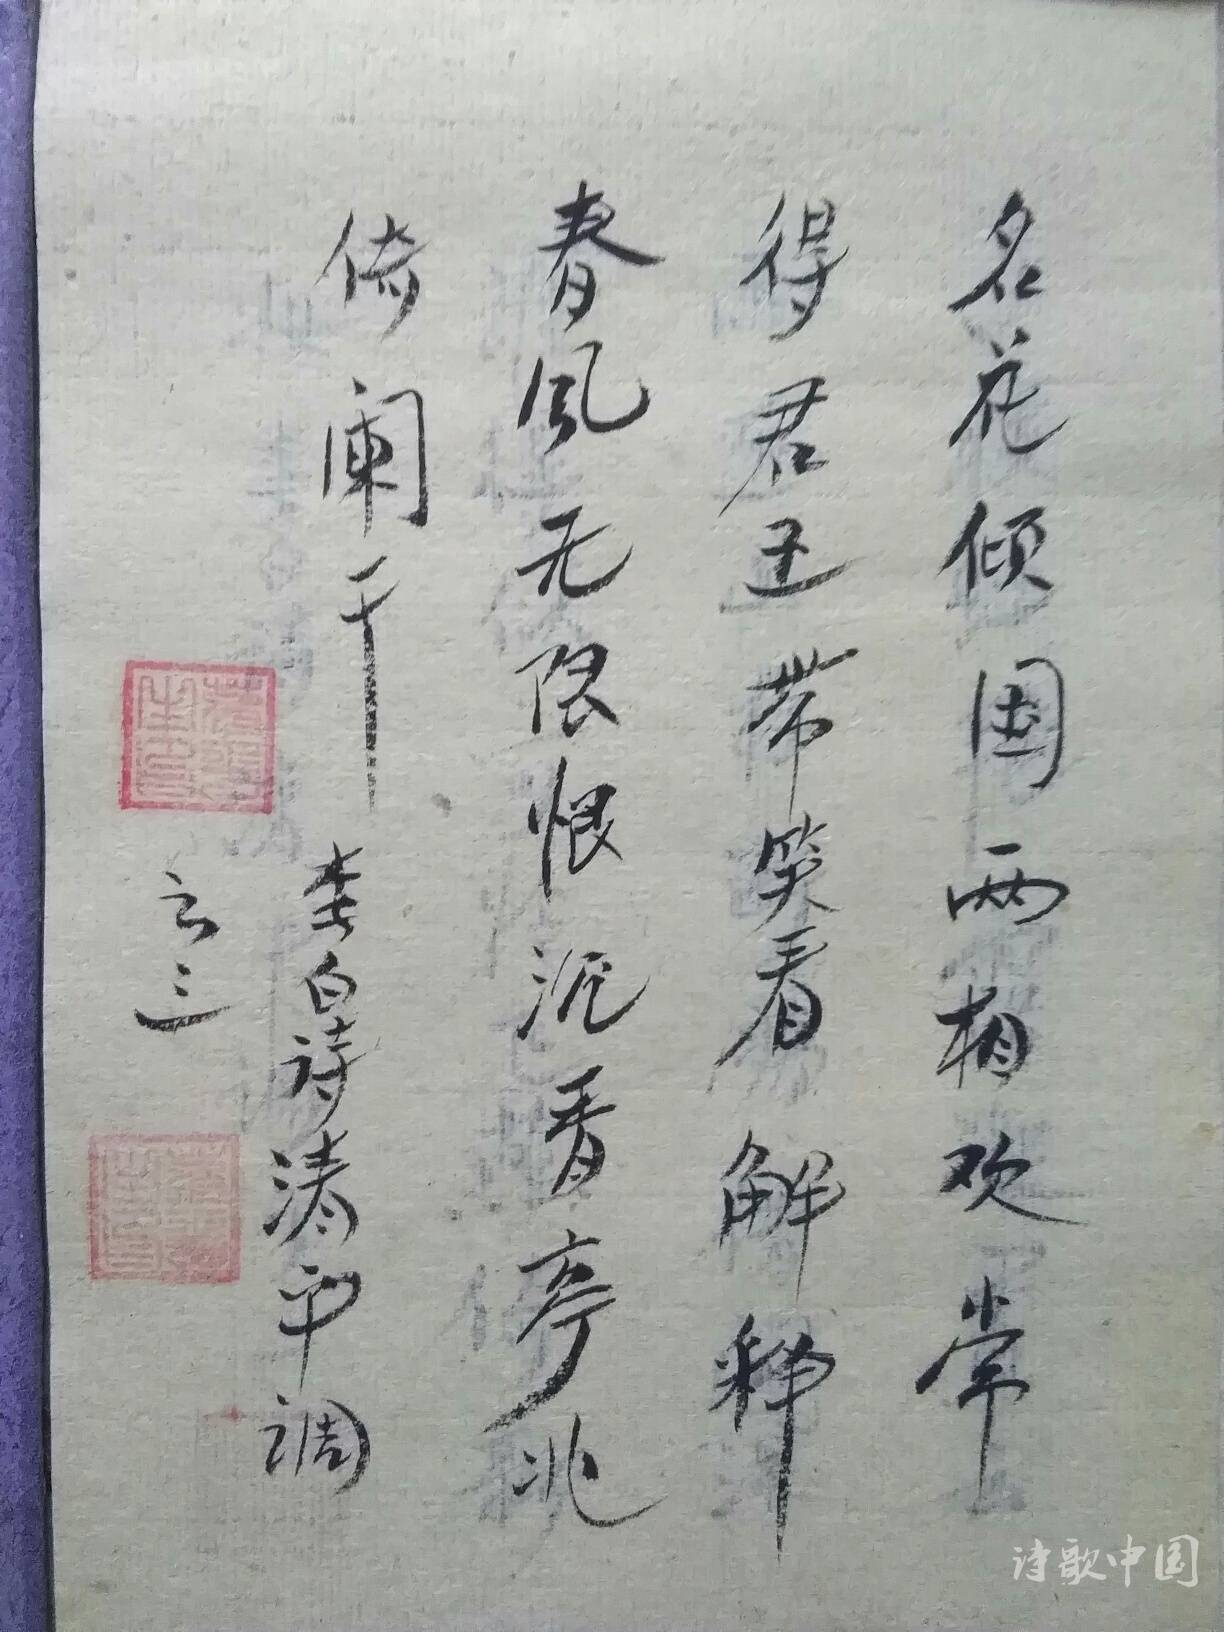 名花倾国两相欢常
得君王带笑看解释
春风无限恨沉香亭北
倚阑干
李白诗清平调
云三
诗歌中国